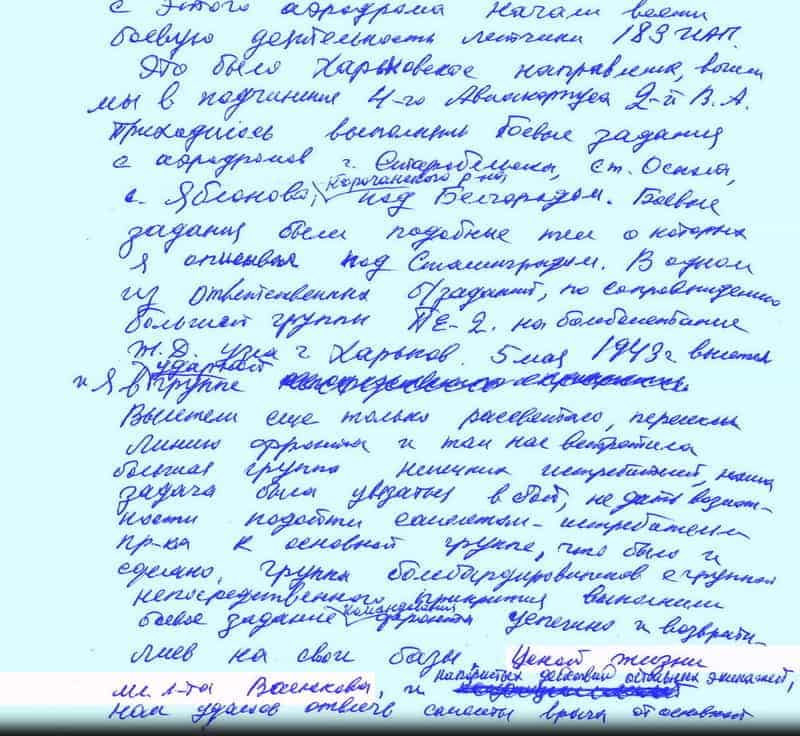 с этого аэродрома начали вести
боевую деятельность летчики 183 ИАП.
Это было Харьковское направление, вошли
мы в подчинение 4-го Авиакорпуса 2-й В.А.
Приходилось выполнять боевые задания
с аэродромов г. Старобельска, ст. Оскола,
с. Яблонова, Корочанского р-на, под Белгородом. Боевые
задания были подобные тем о которых
я описывал под Сталинградом. В одном
из ответственных б/заданий, по сопровождению
большой группы ПЕ-2. на бомбометание
Ж.Д. узла г. Харьков. 5 мая 1943 г вылетел
и я в ударной группе
Вылетели еще только рассветало, пересекли
линию фронта и там нас встретила
большая группа немецких истребителей, наша
задача была увязаться в бой, не дать возмож-
ности подойти самолетам-истребителям
пр-ка к основной группе, что было и
сделано, группа бомбардировщиков с группой
непосредственного прикрытия выполнили
боевое задание командования фронта успешно и возврати-
лись на свои базы, ценой жизни
мл. л-та Васюкова, и напористых действий остальных экипажей,
нам удалось отвлечь самолеты врага от основной